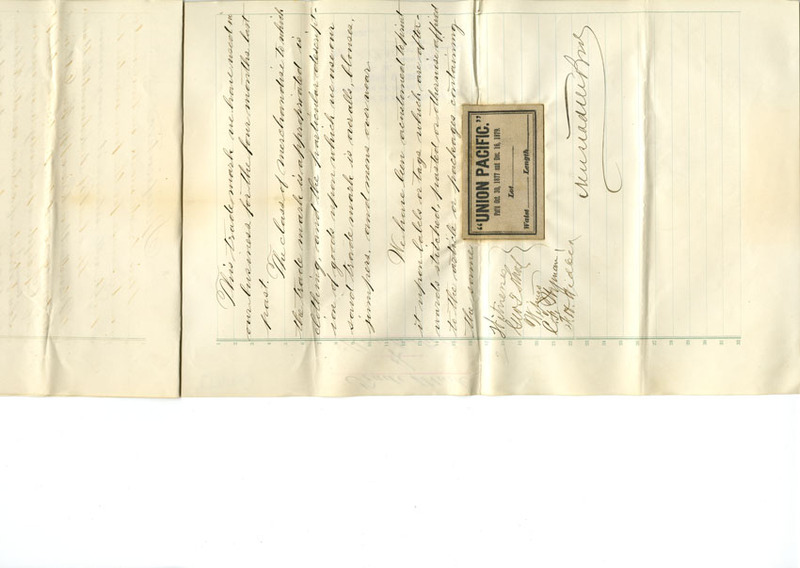 This trade mark we have used in
our business for the four months last
past.
The class of merchandise to which
the trade mark is appropriated is
clothing, and the particular descript-
ion of goods upon which we use our
said trade mark is overalls, blouses,
jumpers, and mens over wear.
We have been accustomed to print
it upon labels or tags which are after-
wards stitched, pasted or otherwise affixed
to the article or packages containing
the same
"UNION PACIFIC."
Pat's Oct. 30, 1877 and Dec. 10, 1878.
Lot
Waist Length
Neustadter Bros
Witnesses
Geo
C. Hyman